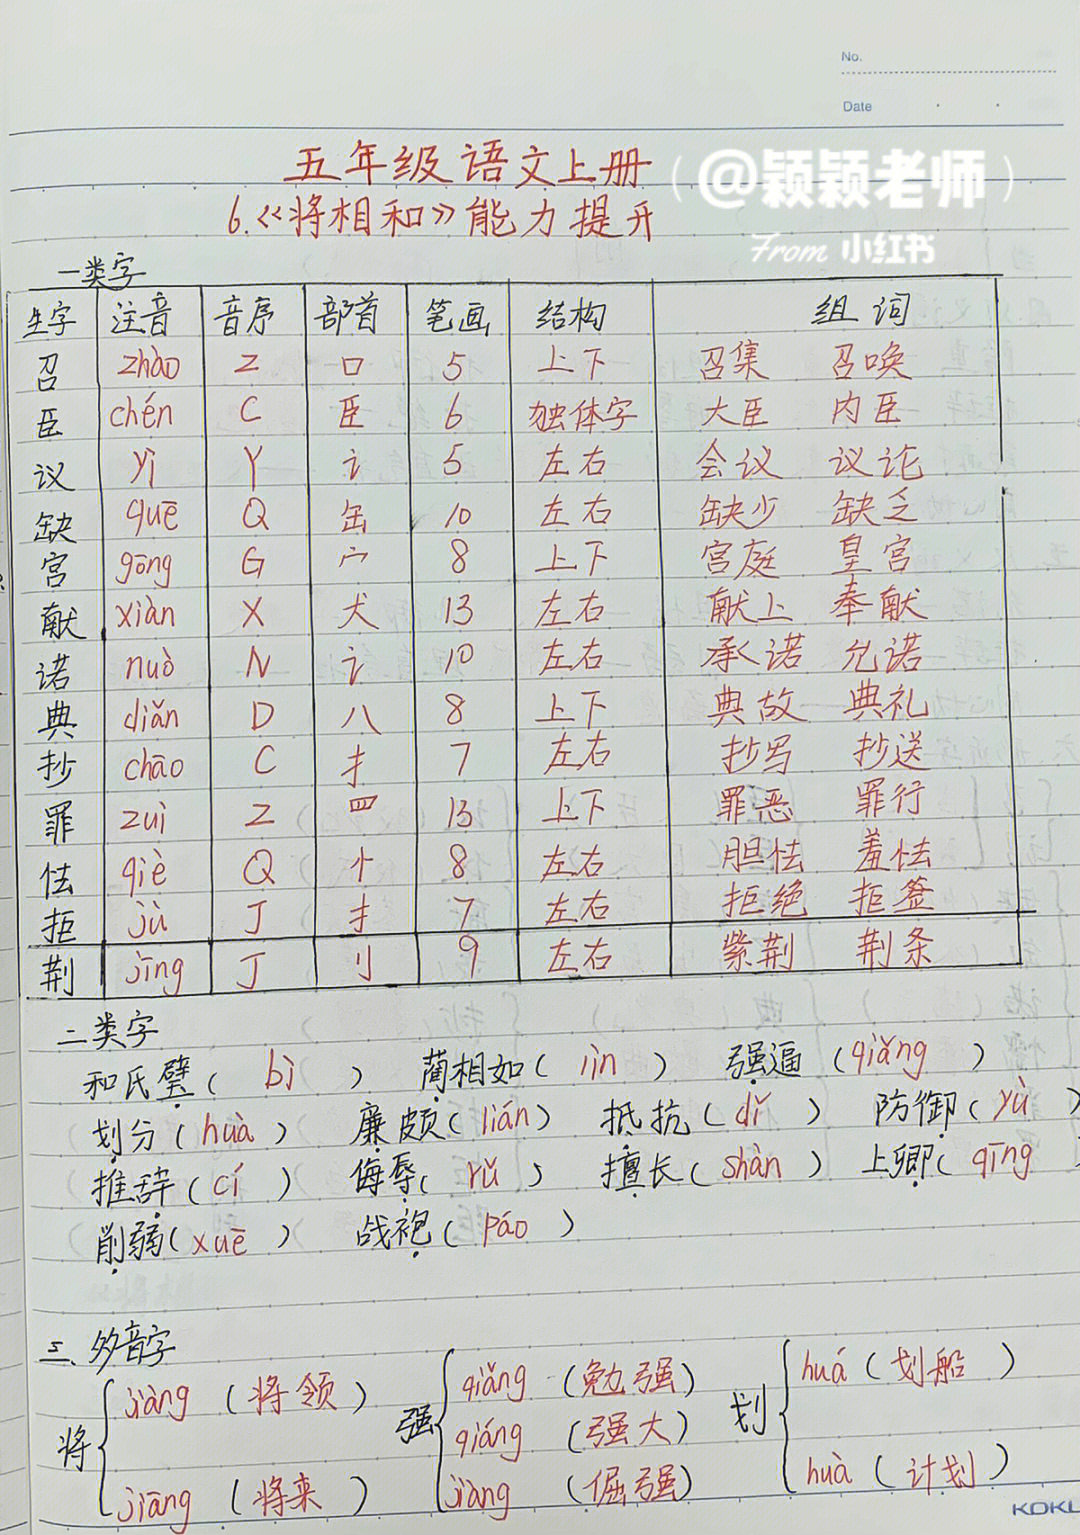 No.
Date
五年级语文上册
(@颖颖老师)
6.《将相和》能力提升
From 小红书
一类字
生字 注音 音序 部首 笔画 结构 组词
召 zhào Z 口 5 上下 召集 召唤
臣 chén C 臣 6 独体字 大臣 内臣
议 yì Y 讠 5 左右 会议 议论
缺 quē Q 缶 10 左右 缺少 缺乏
宫 gōng G 宀 8 上下 宫庭 皇宫
献 xiàn X 犬 13 左右 献上 奉献
诺 nuò N 讠 10 左右 承诺 允诺
典 diǎn D 八 8 上下 典故 典礼
抄 chāo C 扌 7 左右 抄写 抄送
罪 zuì Z 罒 13 上下 罪恶 罪行
怯 qiè Q 忄 8 左右 胆怯 羞怯
拒 jù J 扌 7 左右 拒绝 拒签
荆 jīng J 刂 9 左右 紫荆 荆条
二类字
和氏璧( bì ) 蔺相如( lìn ) 强逼(qiǎng )
划分( huà ) 廉颇( lián) 抵抗( dǐ ) 防御( yù )
推辞( cí ) 侮辱( rǔ ) 擅长( shàn ) 上卿( qīng
削弱( xuē ) 战袍( páo )
三、多音字
将 jiàng (将领) jiāng (将来)
强 qiǎng (勉强) qiáng (强大) jiàng (倔强)
划 huá (划船) huà (计划)
KOKU